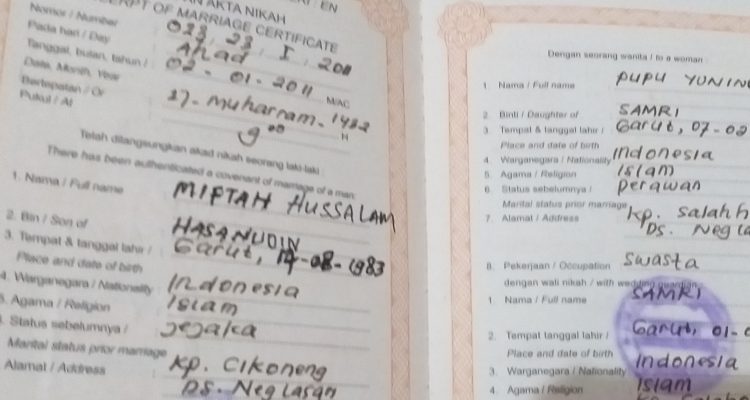 AKTA NIKAH
OF MARRIAGE CERTIFICATE
Nomor / Number 023, 23, I, 2011
Pada hari / Day Ahad
Tanggal, bulan, tahun / 02 - 01 - 2011 M/AC
Date, Month, Year
Bertepatan / Or 27 - Muharram - 1432 H
Pukul / At 9 00
Telah dilangsungkan akad nikah seorang laki-laki
There has been authenticated a covenant of marriage of a man:
1. Nama / Full name MIFTAH HUSSALAM
2. Bin / Son of HASANUDIN
3. Tempat & tanggal lahir / Garut, 14-08-1983
Place and date of birth
4. Warganegara / Nationality Indonesia
5. Agama / Religion Islam
Status sebelumnya / Jejaka
Marital status prior marriage
Alamat / Address Kp. Cikoneng
DS. Neglasari
EN
Dengan seorang wanita / to a woman
1. Nama / Full name PUPU
2. Binti / Daughter of SAMRI
3. Tempat & tanggal lahir / Garut, 07-02
Place and date of birth
4. Warganegara / Nationality Indonesia
5. Agama / Religion Islam
6. Status sebelumnya / Perawan
Marital status prior marriage
7. Alamat / Address Kp. Salahh
DS. Negla
8. Pekerjaan / Occupation Swasta
dengan wali nikah / with wedding guardian
1. Nama / Full name SAMRI
2. Tempat tanggal lahir / Garut, 01-
Place and date of birth
3. Warganegara / Nationality Indonesia
4. Agama / Religion Islam